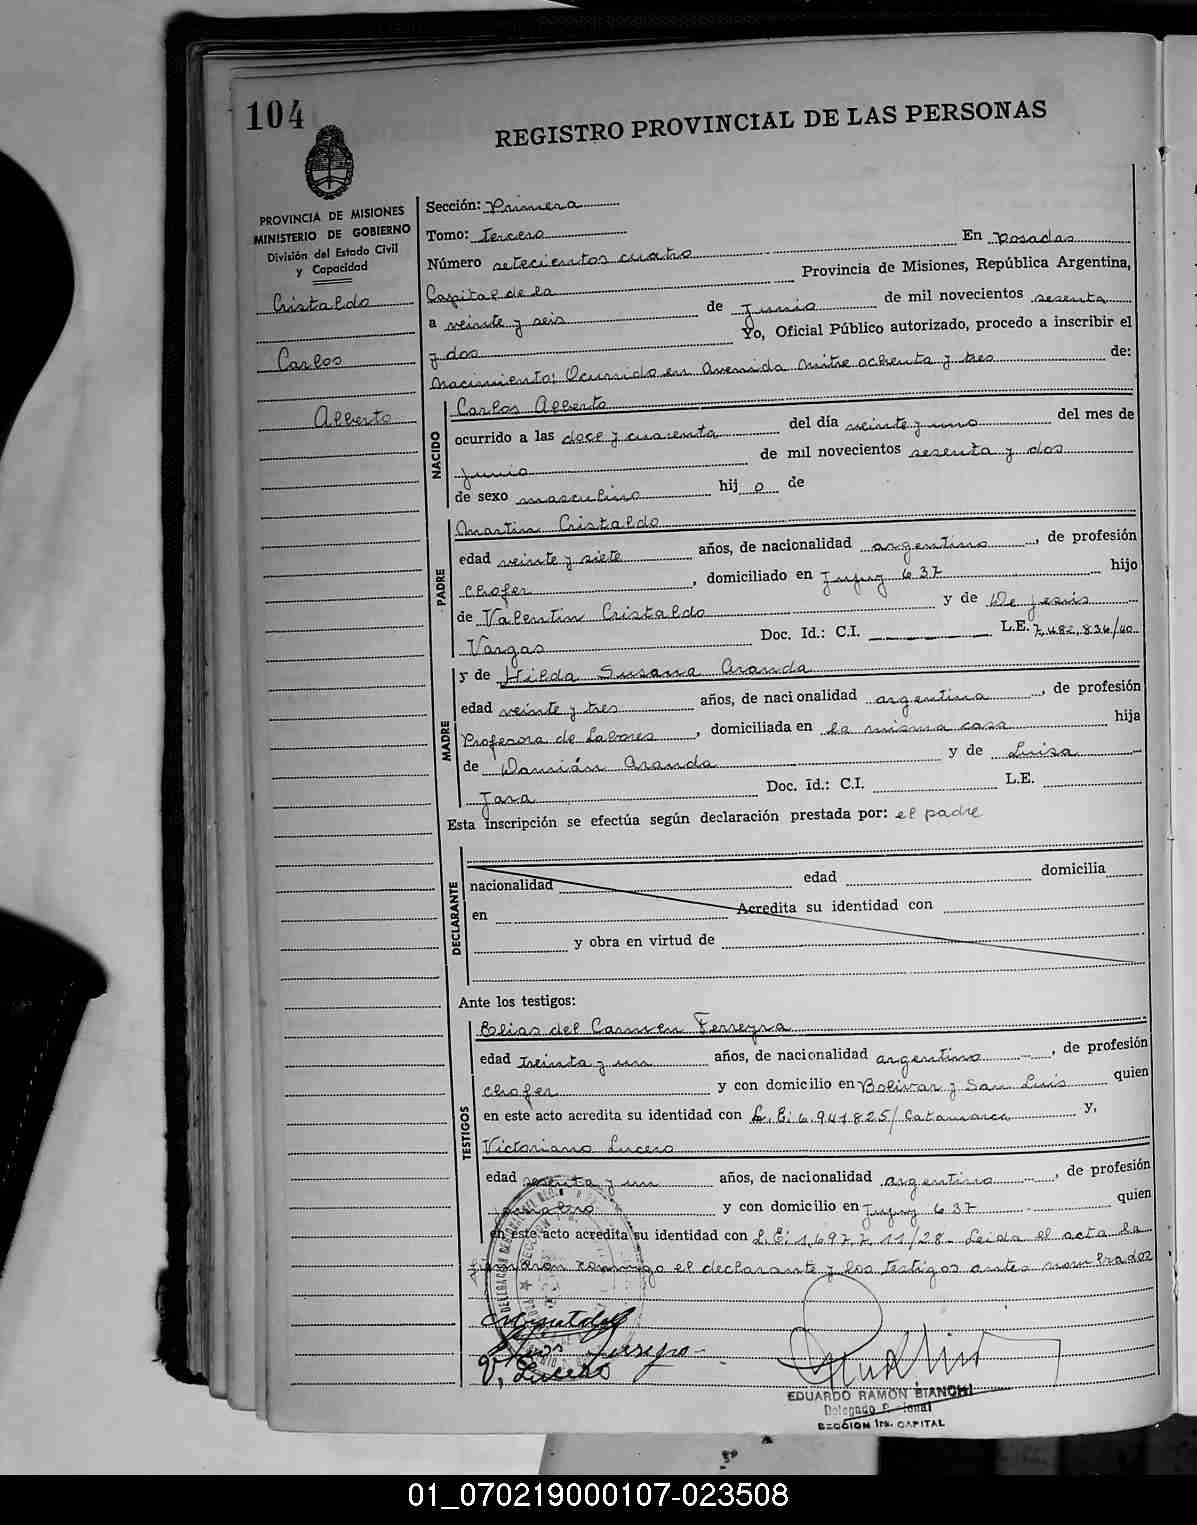 104
REGISTRO PROVINCIAL DE LAS PERSONAS
PROVINCIA DE MISIONES
MINISTERIO DE GOBIERNO
División del Estado Civil
y Capacidad
Cristaldo
Carlos
Alberto
Sección: Primera
Tomo: Tercero
Número setecientos cuatro En Posadas
Capital de la Provincia de Misiones, República Argentina,
a veinte y seis de Junio de mil novecientos sesenta
y dos Yo, Oficial Público autorizado, procedo a inscribir el
Nacimiento: Ocurrido en Avenida Mitre ochenta y tres de:
NACIDO
Carlos Alberto
ocurrido a las doce y cuarenta del día veinte y uno del mes de
Junio de mil novecientos sesenta y dos
de sexo masculino hij o de
PADRE
Martin Cristaldo
edad veinte y siete años, de nacionalidad argentino, de profesión
chofer, domiciliado en Jujuy 637 hijo
de Valentin Cristaldo y de De Jesús
Vargas Doc. Id.: C.I. L.E. 7.482.836/40
MADRE
y de Hilda Susana Aranda
edad veinte y tres años, de nacionalidad argentina, de profesión
Profesora de Labores, domiciliada en la misma casa hija
de Damián Aranda y de Luisa
Jara Doc. Id.: C.I. L.E.
Esta inscripción se efectúa según declaración prestada por: el padre
DECLARANTE
nacionalidad edad domicilia
en Acredita su identidad con
y obra en virtud de
Ante los testigos:
TESTIGOS
Elias del Carmen Ferreyra
edad treinta y un años, de nacionalidad argentino, de profesión
chofer y con domicilio en Bolivar y San Luis quien
en este acto acredita su identidad con L.E. 6.947.825/Catamarca y,
Victoriano Lucero
edad sesenta y un años, de nacionalidad argentino, de profesión
jornalero y con domicilio en Jujuy 637 quien
en este acto acredita su identidad con L.E. 1.697.711/28- Leida el acta la
firmaron conmigo el declarante y los testigos antes nombrados
V. Lucero
EDUARDO RAMON BIANCHI
SECCION 1ra. CAPITAL
01_070219000107-023508